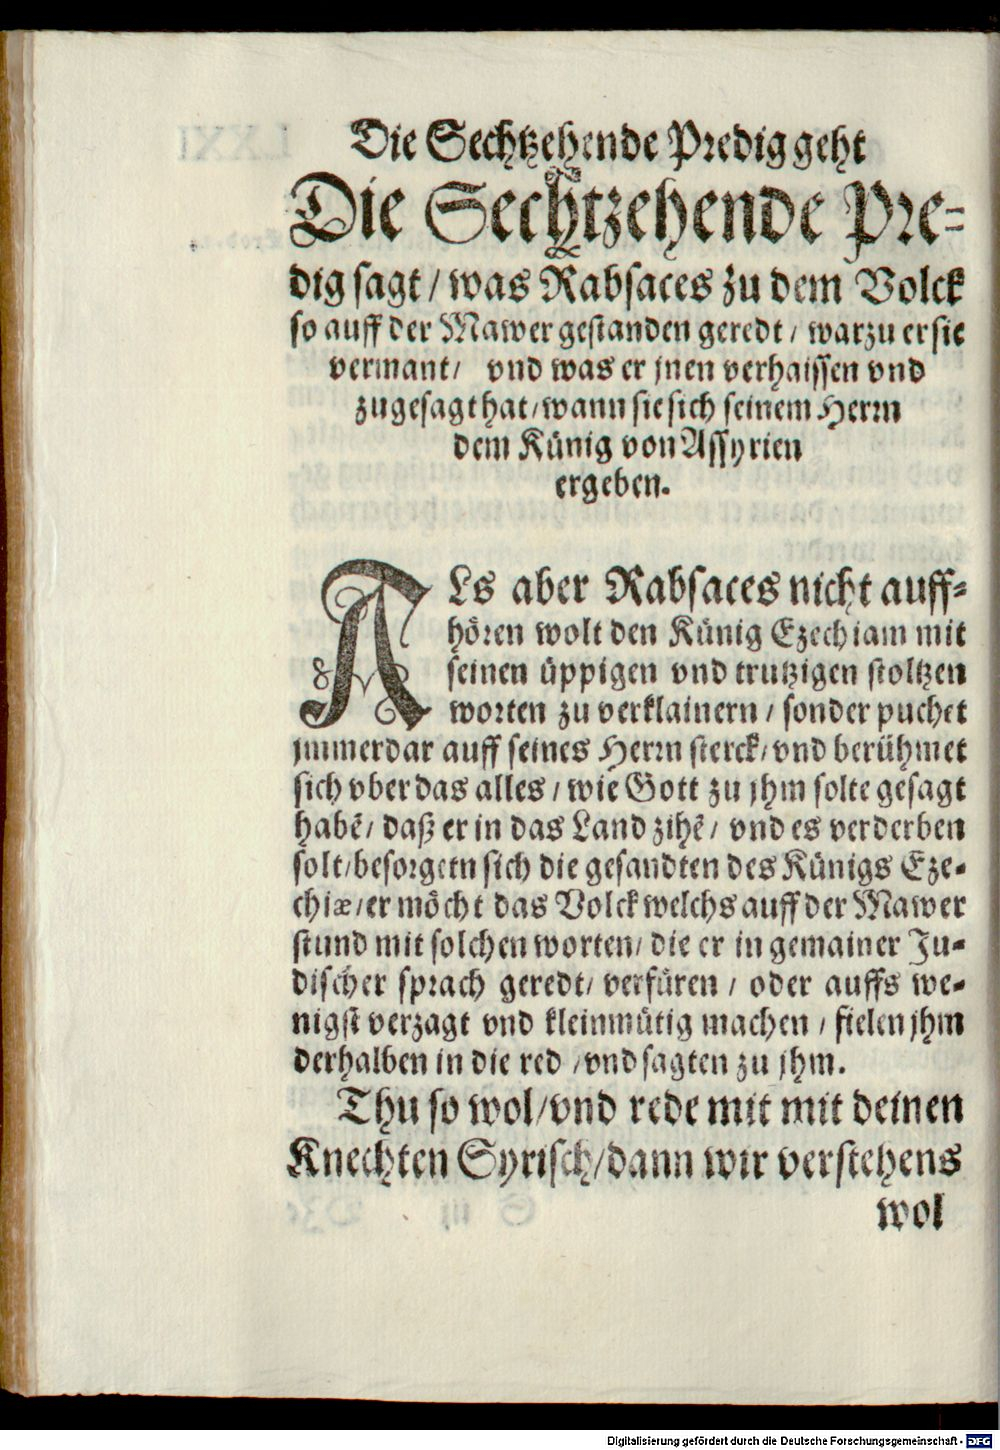 Die Sechtzehende Predig geht
Die Sechtzehende Pre-
dig sagt / was Rabsaces zu dem Volck
so auff der Mawer gestanden geredt / warzu er sie
vermant / vnd was er jnen verhaissen vnd
zugesagt hat / wann sie sich seinem Herrn
dem Künig von Assyrien
ergeben.
ALs aber Rabsaces nicht auff-
hören wolt den Künig Ezechiam mit
seinen üppigen vnd trutzigen stoltzen
worten zu verklainern / sonder puchet
jmmerdar auff seines Herrn sterck / vnd berühmet
sich vber das alles / wie Gott zu jhm solte gesagt
habẽ / daß er in das Land zihẽ / vnd es verderben
solt / besorgetn sich die gesandten des Künigs Eze-
chiæ / er möcht das Volck welchs auff der Mawer
stund mit solchen worten / die er in gemainer Ju-
discher sprach geredt / verfüren / oder auffs we-
nigst verzagt vnd kleinmütig machen / fielen jhm
derhalben in die red / vnd sagten zu jhm.
Thu so wol / vnd rede mit mit deinen
Knechten Syrisch / dann wir verstehens
wol
Digitalisierung gefördert durch die Deutsche Forschungsgemeinschaft - DFG